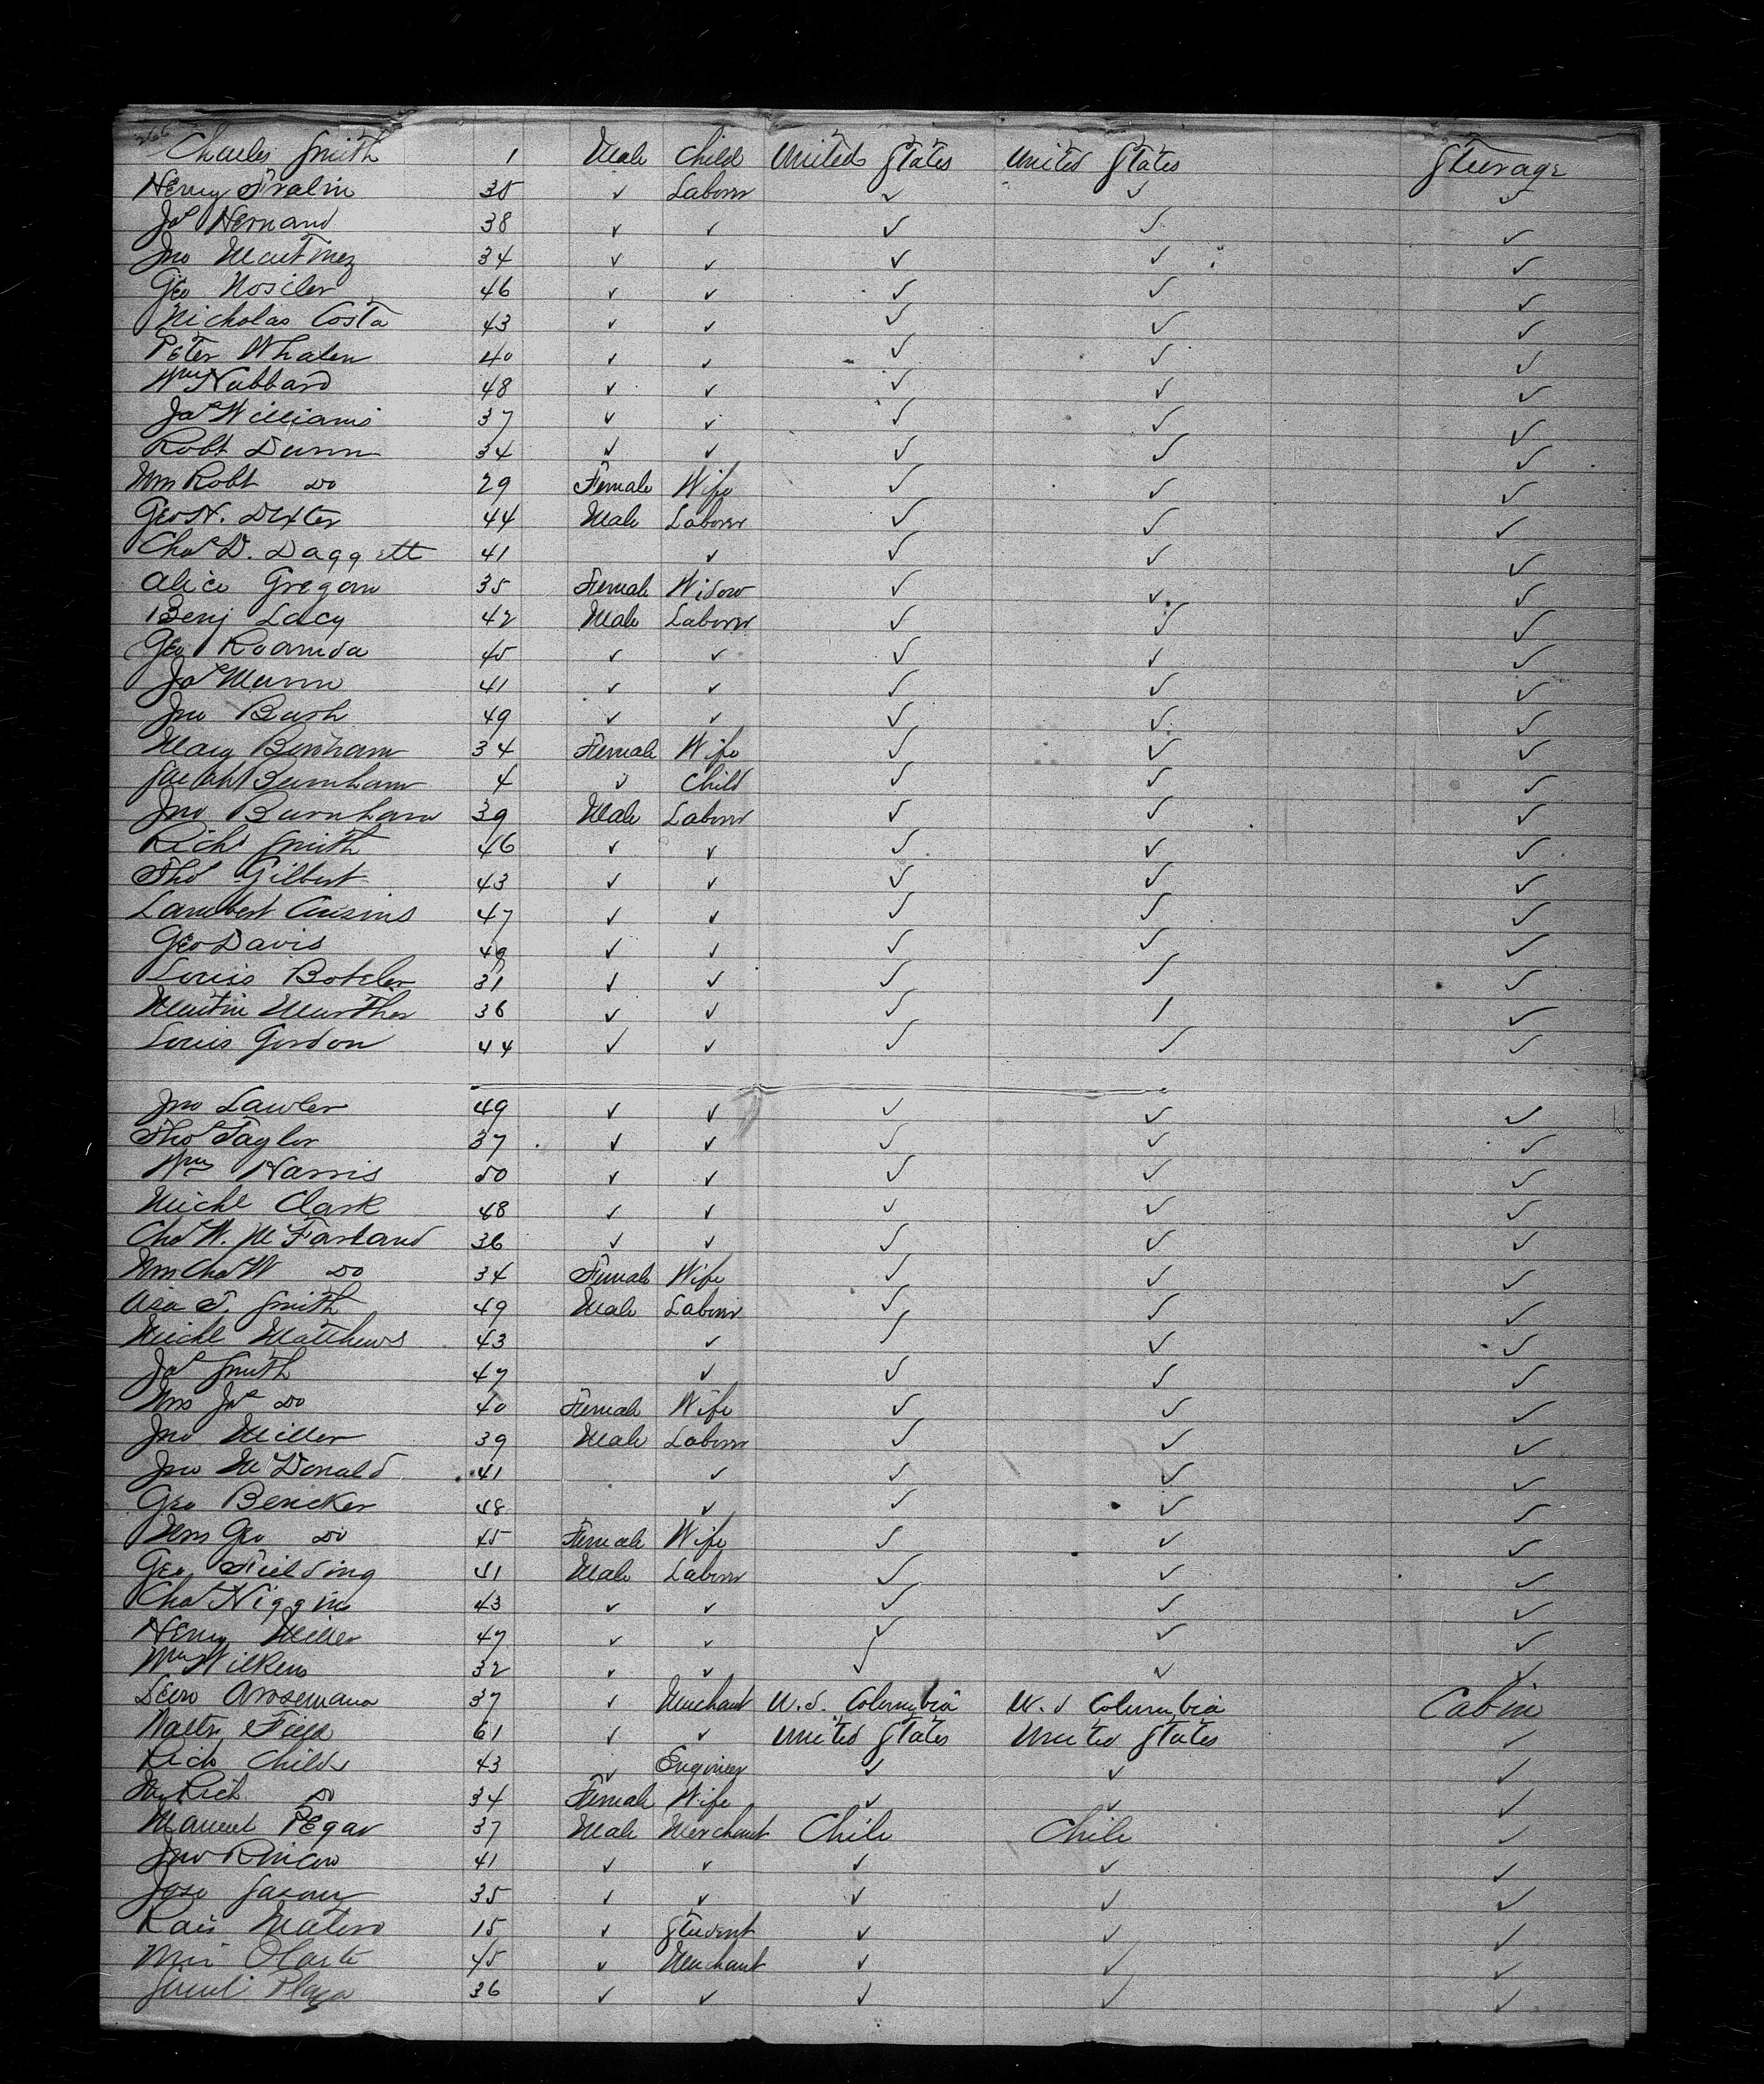 266
Charles Smith 1 Male Child United States United States Steerage
Henry Fralin 35 ✓ Laborer ✓ ✓ ✓
Jas Hernand 38 ✓ ✓ ✓ ✓ ✓
Jno Martinez 34 ✓ ✓ ✓ ✓ ✓
Geo Hosiler 46 ✓ ✓ ✓ ✓ ✓
Nicholas Costa 43 ✓ ✓ ✓ ✓ ✓
Peter Whalen 40 ✓ ✓ ✓ ✓ ✓
Wm Hubbard 48 ✓ ✓ ✓ ✓ ✓
Jas Williams 37 ✓ ✓ ✓ ✓ ✓
Robt Dunn 34 ✓ ✓ ✓ ✓ ✓
Mrs Robt Do 29 Female Wife ✓ ✓ ✓
Geo H. Dexter 44 Male Laborer ✓ ✓ ✓
Chas D. Daggett 41 ✓ ✓ ✓ ✓
Alice Gregan 35 Female Widow ✓ ✓ ✓
Benj Lacy 42 Male Laborer ✓ ✓ ✓
Geo 45 ✓ ✓ ✓ ✓ ✓
Jas Munn 41 ✓ ✓ ✓ ✓ ✓
Jno Bush 49 ✓ ✓ ✓ ✓ ✓
Mary Burnham 34 Female Wife ✓ ✓ ✓
Sarah Burnham 4 ✓ Child ✓ ✓ ✓
Jno Burnham 39 Male Laborer ✓ ✓ ✓
Richd Smith 46 ✓ ✓ ✓ ✓ ✓
Thos Gilbert 43 ✓ ✓ ✓ ✓ ✓
Lambert Cousins 47 ✓ ✓ ✓ ✓ ✓
Geo Davis 49 ✓ ✓ ✓ ✓ ✓
Louis Boteler 31 ✓ ✓ ✓ ✓ ✓
Martin 36 ✓ ✓ ✓ ✓ ✓
Louis Gordon 44 ✓ ✓ ✓ ✓ ✓
Jno Lawler 49 ✓ ✓ ✓ ✓ ✓
Thos Taylor 37 ✓ ✓ ✓ ✓ ✓
Wm Harris 50 ✓ ✓ ✓ ✓ ✓
Michl Clark 48 ✓ ✓ ✓ ✓ ✓
Chas W. McFarland 36 ✓ ✓ ✓ ✓ ✓
Mrs Chas W Do 34 Female Wife ✓ ✓ ✓
Asa T. Smith 49 Male Laborer ✓ ✓ ✓
Michl Matthews 43 ✓ ✓ ✓ ✓
Jas Smith 47 ✓ ✓ ✓ ✓
Mrs Jas Do 40 Female Wife ✓ ✓ ✓
Jno Miller 39 Male Laborer ✓ ✓ ✓
Jno McDonald 41 ✓ ✓ ✓ ✓
Geo Bencker 48 ✓ ✓ ✓ ✓
Mrs Geo Do 45 Female Wife ✓ ✓ ✓
Geo Fielding 41 Male Laborer ✓ ✓ ✓
Chas Higgins 43 ✓ ✓ ✓ ✓ ✓
Henry Miller 47 ✓ ✓ ✓ ✓ ✓
Wm Wilkens 32 ✓ ✓ ✓ ✓ ✓
Arosemana 37 ✓ Merchant U.S. Columbia U.S Columbia Cabin
Walter Field 61 ✓ ✓ United States United States ✓
Rich Childs 43 ✓ Engineer ✓ ✓ ✓
Mrs Rich Do 34 Female Wife ✓ ✓ ✓
Manuel Pegar 37 Male Merchant Chile Chile ✓
Jno Rincon 41 ✓ ✓ ✓ ✓ ✓
Jose 35 ✓ ✓ ✓ ✓ ✓
Matero 15 ✓ Student ✓ ✓ ✓
Olarte 45 ✓ Merchant ✓ ✓ ✓
Plaza 36 ✓ ✓ ✓ ✓ ✓